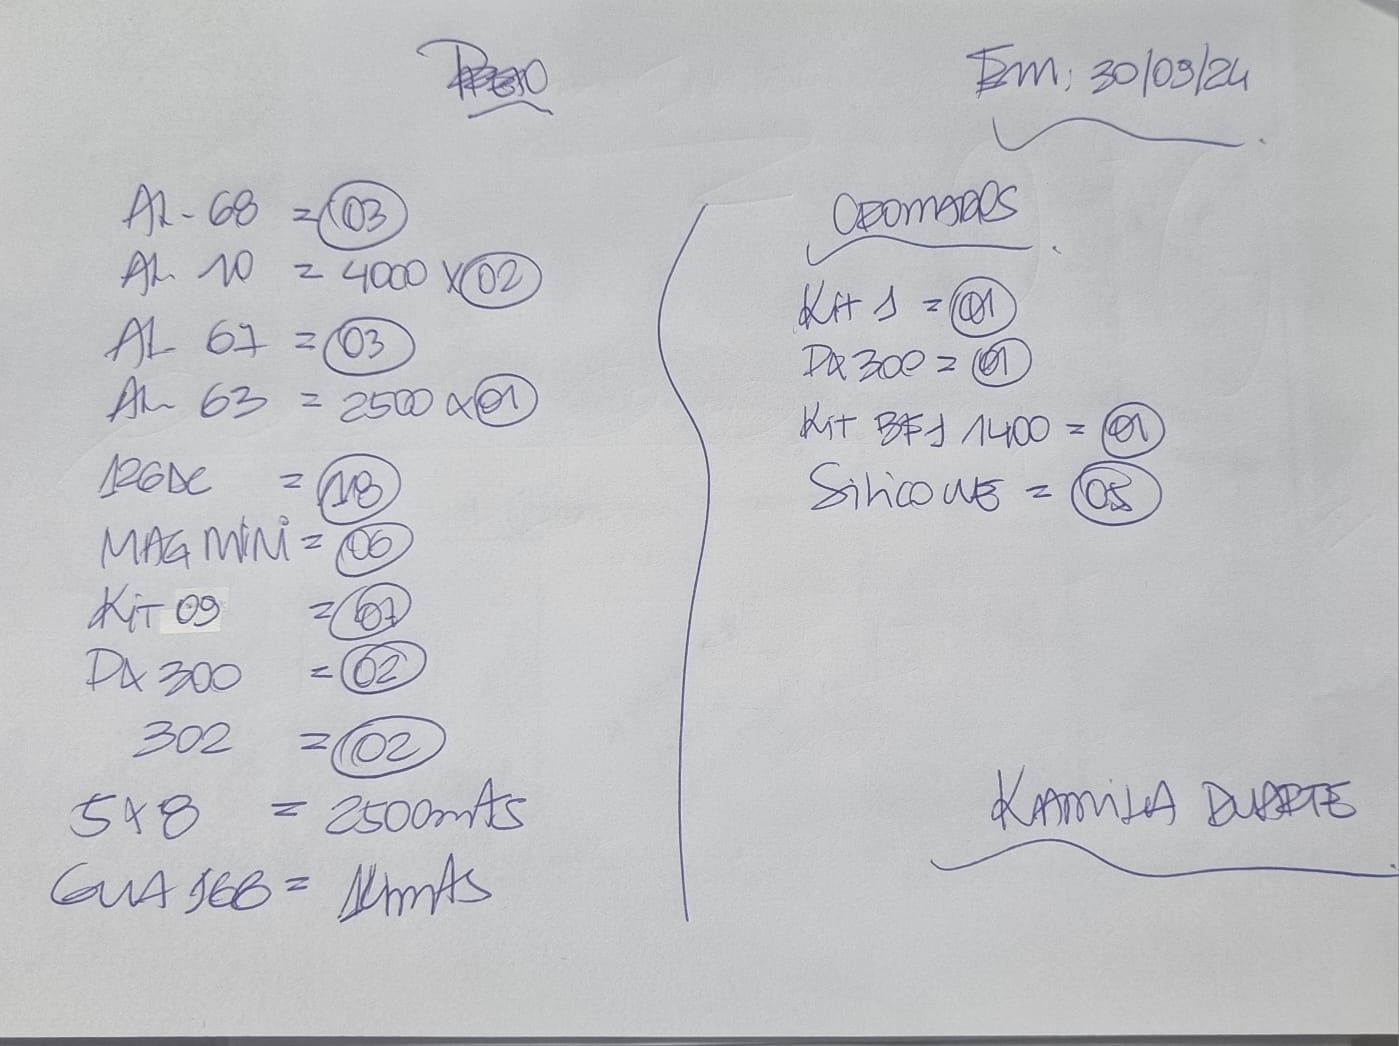 PRETO
Em: 30/09/24
AL-68 = 03
AL 10 = 4000 x 02
AL 67 = 03
AL 63 = 2500 x 01
126DC = 18
MAG MiNi = 06
KiT 09 = 07
DX 300 = 02
302 = 02
5x8 = 2500mts
GUA 168 = mts
CROMADOS
Kit 1 = 01
DX 300 = 01
Kit BF1 1400 = 01
SiliCONE = 05
KAMiLA DUARTE